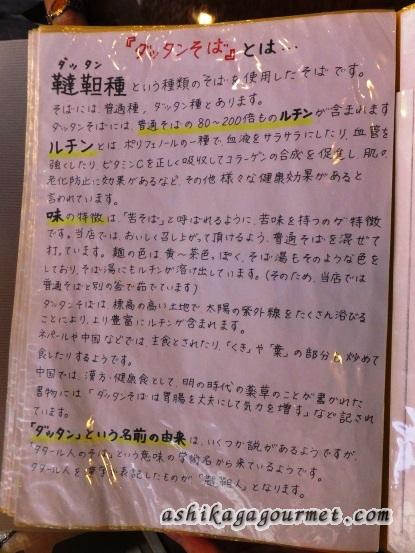 『ダッタンそば』とは…
ダッタン
韃靼種という種類のそばを使用したそばです。
そばには普通種、ダッタン種とあります。
ダッタンそばには、普通そばの80〜200倍ものルチンが含まれます
ルチンとは、ポリフェノールの一種で、血液をサラサラにしたり、血管を
強くしたり、ビタミンCを正しく吸収してコラーゲンの合成を促進し、肌の
老化防止に効果があるなど、その他様々な健康効果があると
言われています。
味の特徴は、「苦そば」と呼ばれるように、苦味を持つのが特徴
です。当店では、おいしく召し上がって頂けるよう、普通そばを混ぜて
打っています。麺の色は黄〜茶色っぽく、そば湯もそのような色を
しており、そば湯にもルチンが溶け出しています。(そのため、当店では
普通そばと別の釜で茹でています)
ダッタンそばは、標高の高い土地で、太陽の紫外線をたくさん浴びる
ことにより、より豊富にルチンが含まれます。
ネパールや中国などでは主食とされたり、「くき」や「葉」の部分も炒めて
食したりするようです。
中国では、漢方・健康食として、明の時代の薬草のことが書かれた
書物には「ダッタンそばは胃腸を丈夫にして気力を増す」などと記され
ています。
「ダッタン」という名前の由来は、いくつか説があるようですが、
「タタール人のそば」という意味の学術名から来ているようです。
タタール人を漢字で表記したものが「韃靼人」となります。
ashikagagourmet.com